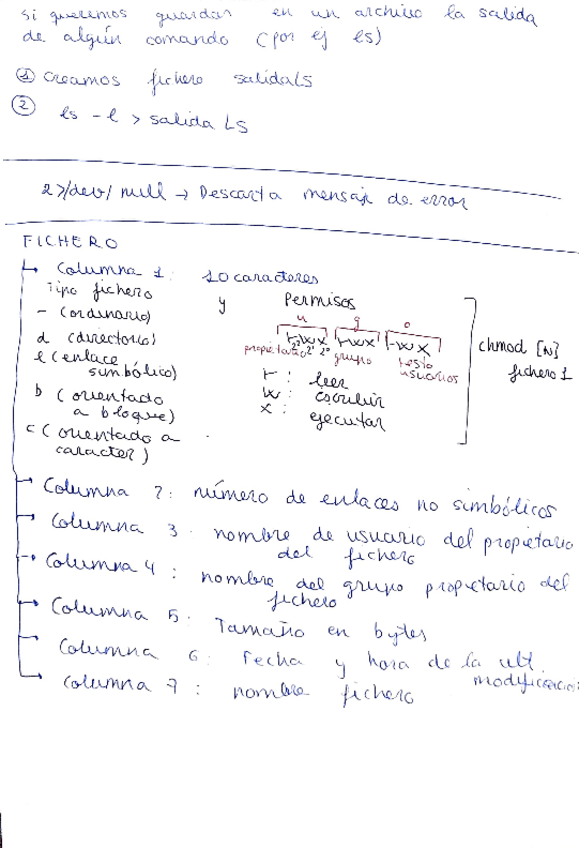 si queremos guardar en un archivo la salida
de algún comando (por ej ls)
① Creamos fichero salidaLS
② ls -l > salida LS
2>/dev/null → Descarta mensaje de error
FICHERO
→ Columna 1: 10 caracteres
Tipo fichero y Permisos
- (ordinario)
d (directorio)
l (enlace simbólico)
b (orientado a bloque)
c (orientado a caracter)
u g o
rwx rwx rwx
2² 2¹ 2⁰
propietario grupo resto usuarios
r : leer
w : escribir
x : ejecutar
chmod [N]
fichero 1
→ Columna 2: número de enlaces no simbólicos
→ Columna 3: nombre de usuario del propietario
del fichero
→ Columna 4: nombre del grupo propietario del
fichero
→ Columna 5: Tamaño en bytes
→ Columna 6: Fecha y hora de la ult.
modificacion
→ Columna 7: nombre fichero